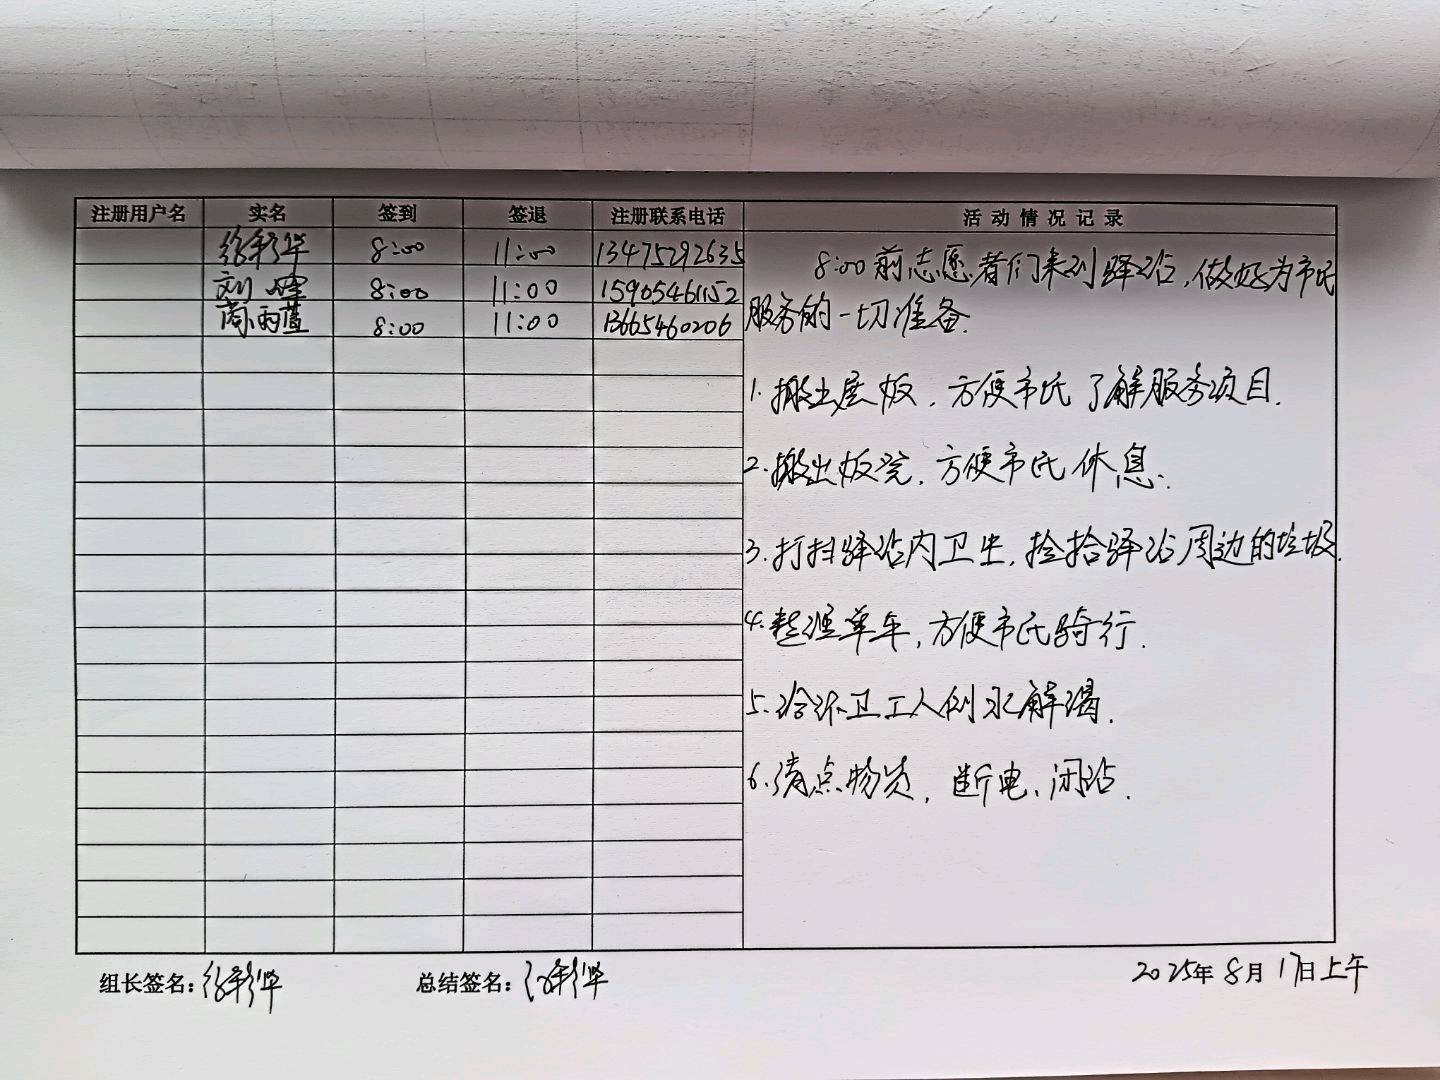 注册用户名 实名 签到 签退 注册联系电话 活动情况记录
徐彩华 8:00 11:00 13475292635
刘 8:00 11:00 15905461152
雨蓝 8:00 11:00 13665460206
8:00前志愿者们来到驿站,做好为市民
服务的一切准备.
1.搬出展板,方便市民了解服务项目.
2.搬出板凳,方便市民休息.
3.打扫驿站内卫生,捡拾驿站周边的垃圾.
4.整理单车,方便市民骑行.
5.给环卫工人倒水解渴.
6.清点物资,断电、闭站.
组长签名:徐彩华 总结签名:徐彩华 2025年8月17日上午